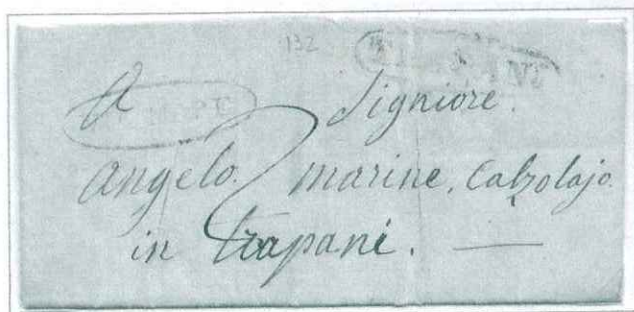 132
A Signiore.
Angelo. marine. Calzolajo.
in Trapani. —